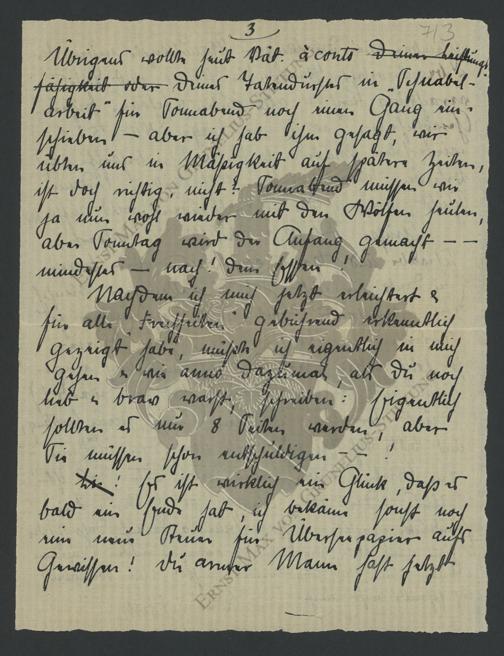 3
713
Übrigens wollte heut Vat. à conto deiner Leistungs-
fähigkeit oder deines Tatendurstes in "Schnabel-
arbeit" für Sonnabend noch einen Gang ein-
schieben – aber ich hab ihm gesagt, wir
übten uns in Mäßigkeit auf spätere Zeiten,
ist doch richtig, nicht? Sonnabend müssen wir
ja nun wohl wieder mit den Wölfen heulen,
aber Sonntag wird der Anfang gemacht – –
mindestens – nach! dem Essen
Nachdem ich mich jetzt erleichtert &
für alle "Frechheiten" gebührend erkenntlich
gezeigt habe, müßte ich eigentlich in mich
gehen & wie anno dazumal, als du noch
lieb & brav warst, schreiben: Eigentlich
sollten es nur 8 Seiten werden, aber
Sie müssen schon entschuldigen – – !
! Es ist wirklich ein Glück, daß es
bald ein Ende hat, ich bekäme sonst noch
eine neue Steuer für Überseepapier aufs
Gewissen! Du armer Mann hast jetzt
ERNST MAX VON GRUNELIUS-STIFTUNG
ERNST MAX VON GRUNELIUS-STIFTUNG